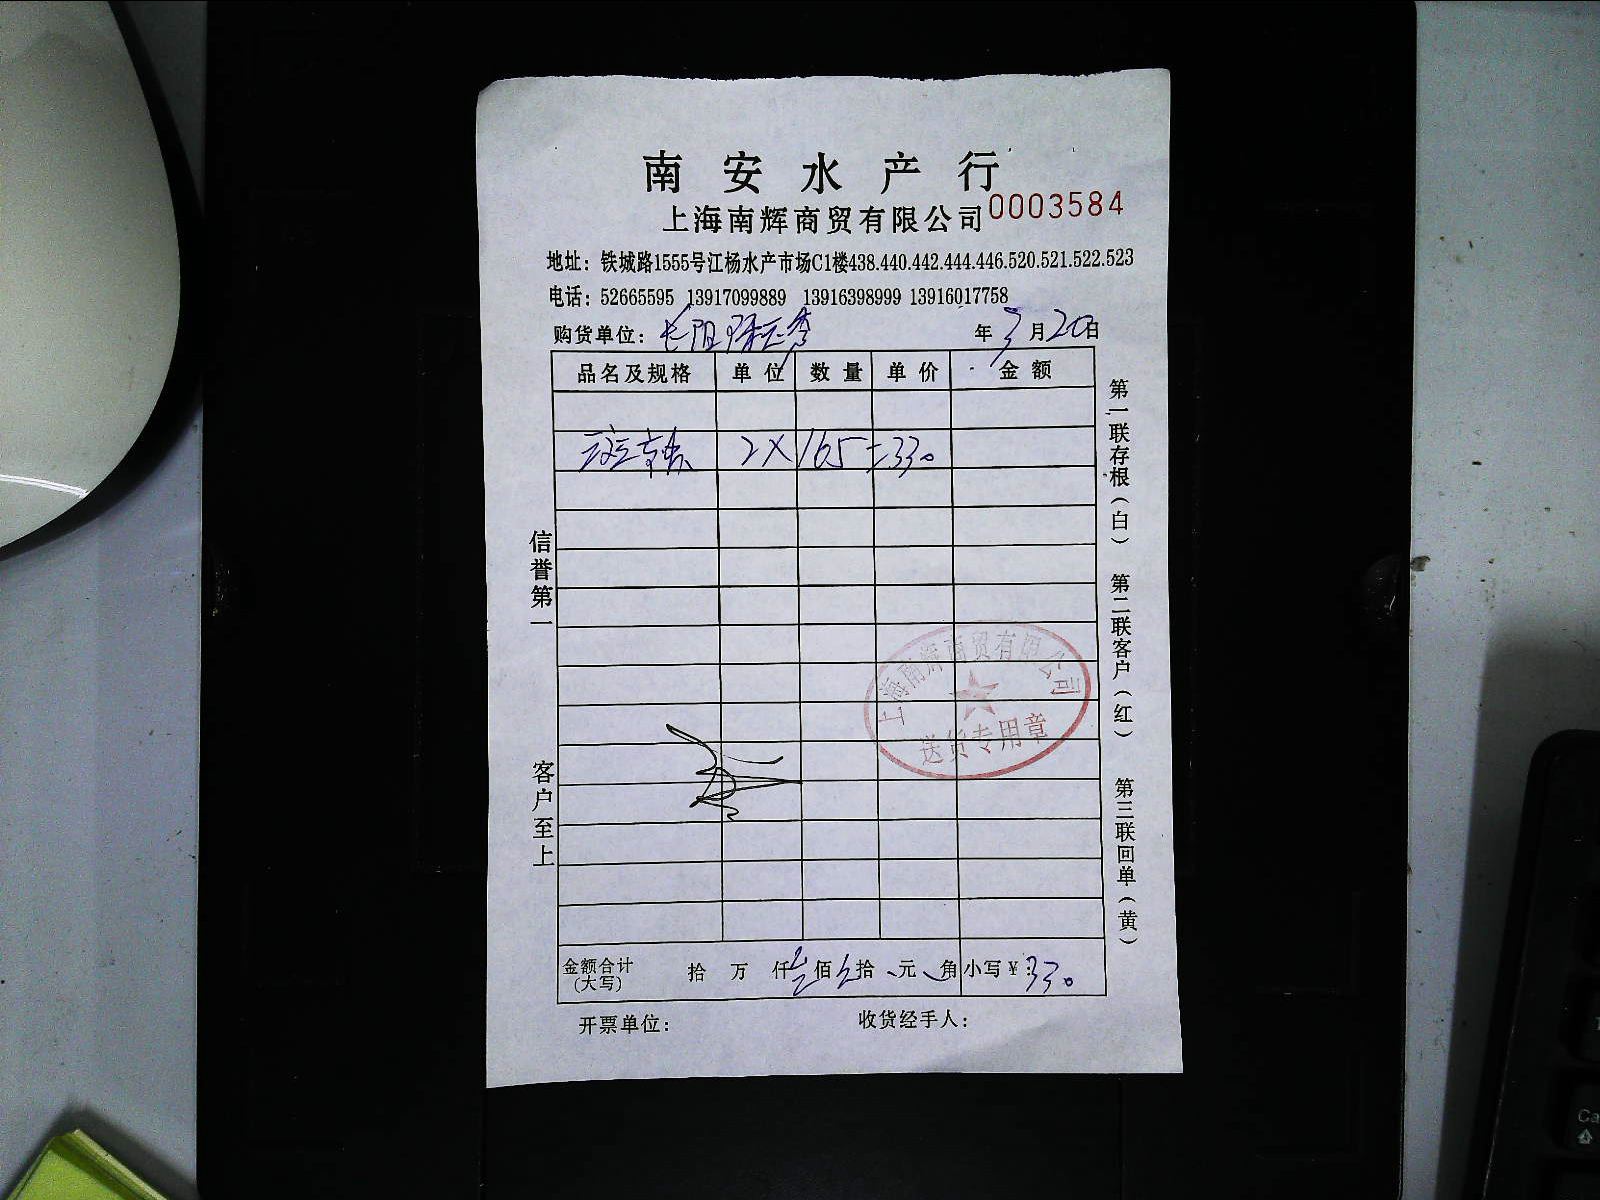 南安水产行
上海南辉商贸有限公司 0003584
地址：铁城路1555号江杨水产市场C1楼438.440.442.444.446.520.521.522.523
电话：52665595 13917099889 13916398999 13916017758
购货单位： 年3月20日
品名及规格 单位 数量 单价 金额
2×165=330
信誉第一
客户至上
第一联存根（白） 第二联客户（红） 第三联回单（黄）
上海南辉商贸有限公司
送货专用章
金额合计（大写） 拾 万 仟 佰 拾 元 角 小写￥：330
开票单位： 收货经手人：